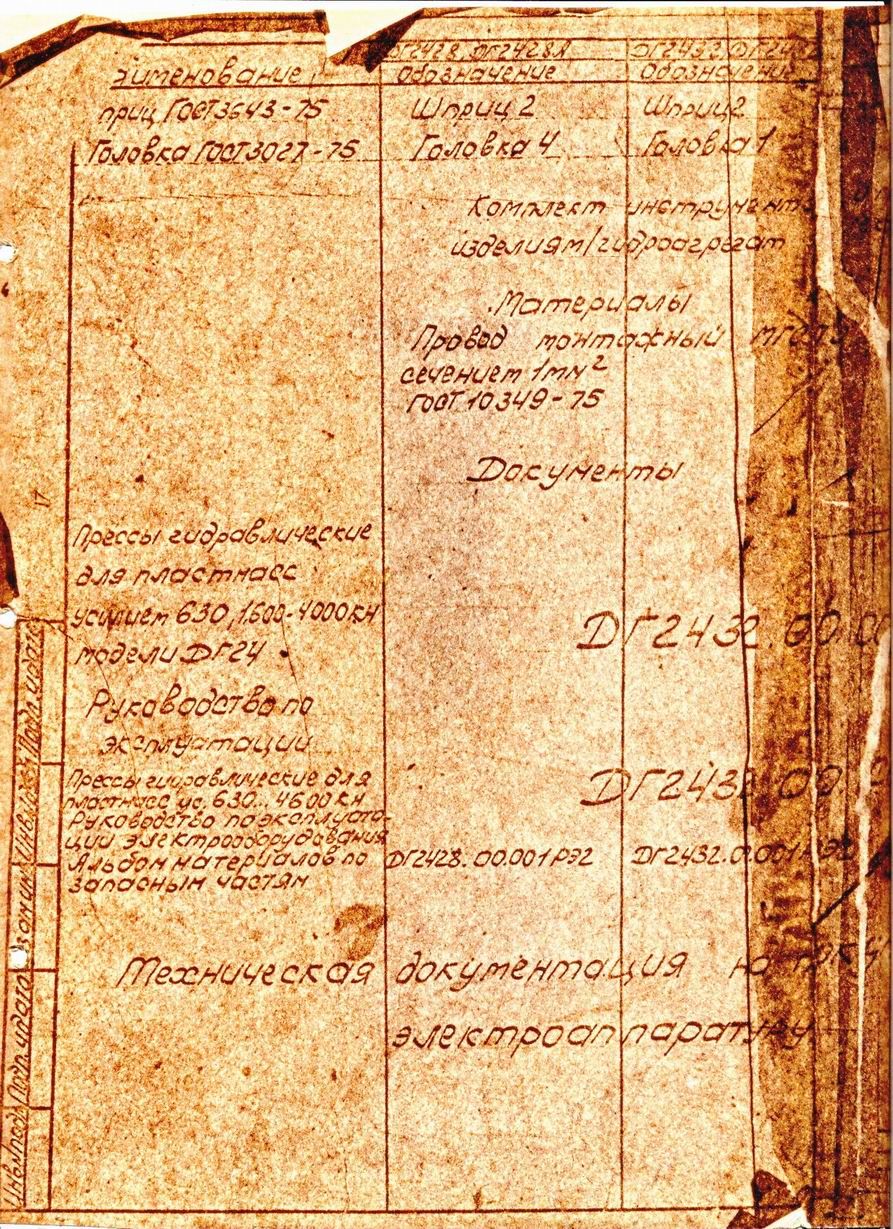 ДГ2428, ДГ2428А
именование Обозначение Обозначение
приц ГОСТ3643-75 Шприц 2 Шприц 2
Головка ГОСТ3027-75 Головка 4 Головка 1
Комплект инструмент
изделиям/гидроагрегат
Материалы
Провод монтажный
сечением 1мм²
ГОСТ 10349-75
Документы
Прессы гидравлические
для пластмасс
усилием 630, 1600-4000кН
модели ДГ24
ДГ2432.00.0
Руководство по
эксплуатации
Прессы гидравлические для
пластмасс ус. 630...4600кН
ДГ2432.00
Руководство по эксплуата-
ции электрооборудования
Альбом материалов по ДГ2428.00.001РЭ2 ДГ2432.0.001РЭ2
запасным частям
Техническая документация на
электроаппаратуру
Инв.№подл Подп. и дата Взам.инв Инв. Подп. и дата